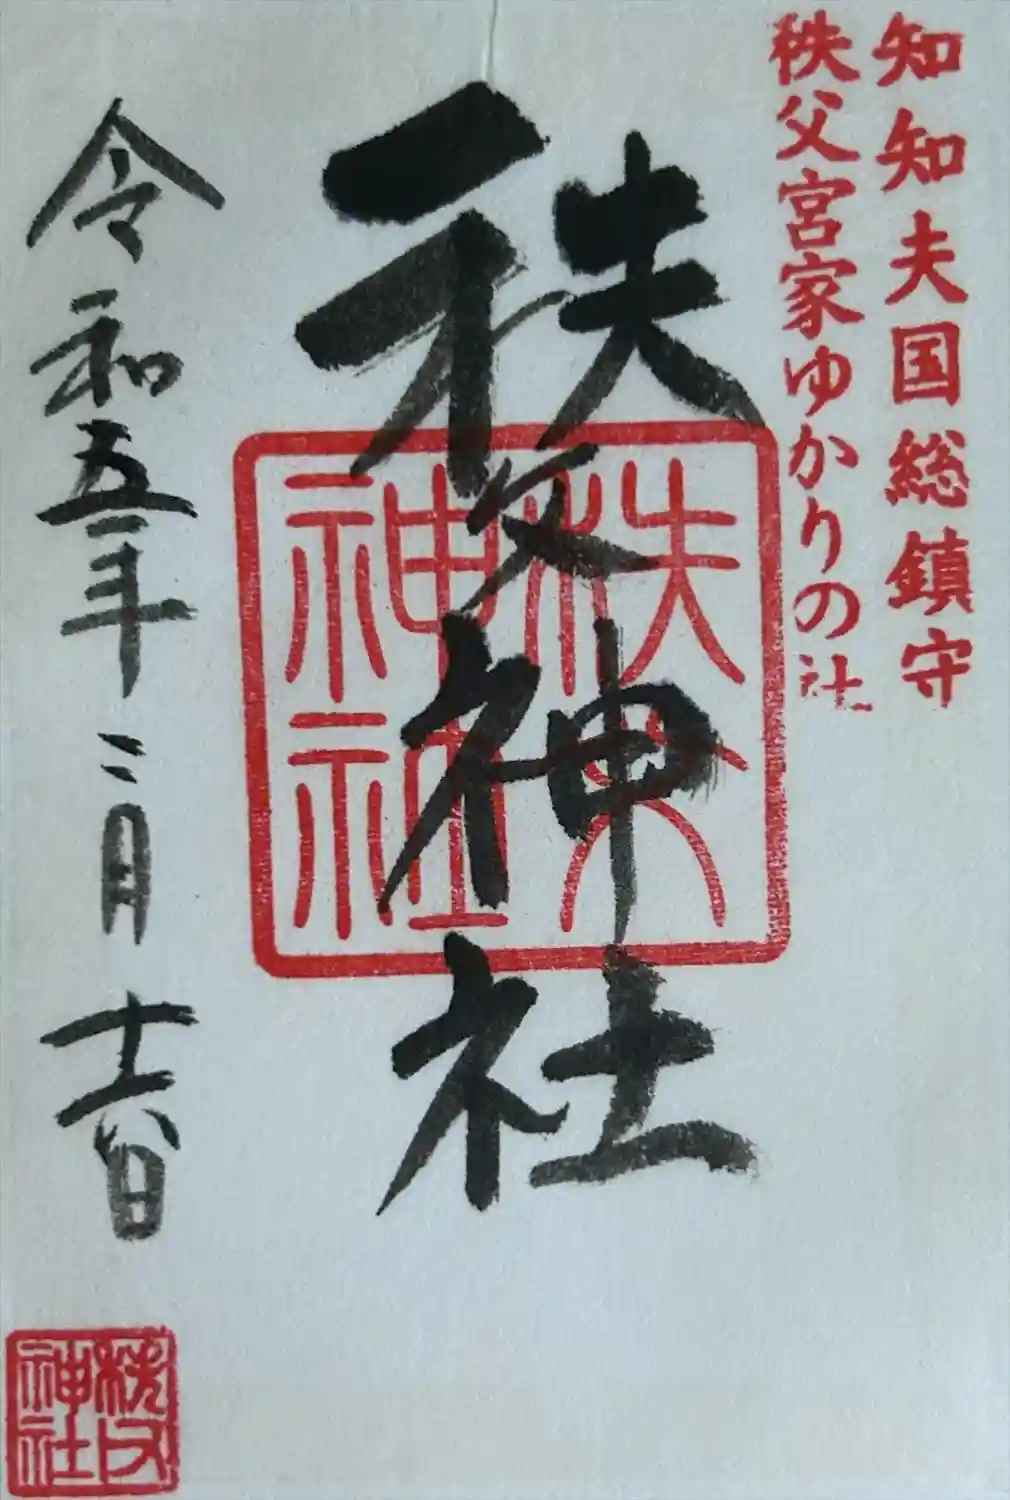 知知夫国総鎮守
秩父宮家ゆかりの社
秩父神社
秩父
神社
令和五年二月十六日
秩父
神社